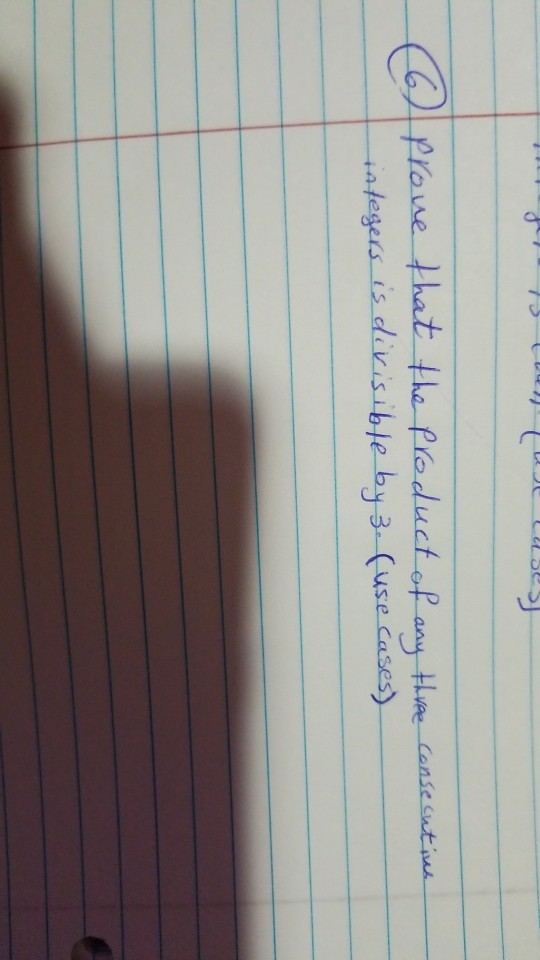 (use cases)
⑥ prove that the product of any three consecutive
integers is divisible by 3. (use cases)